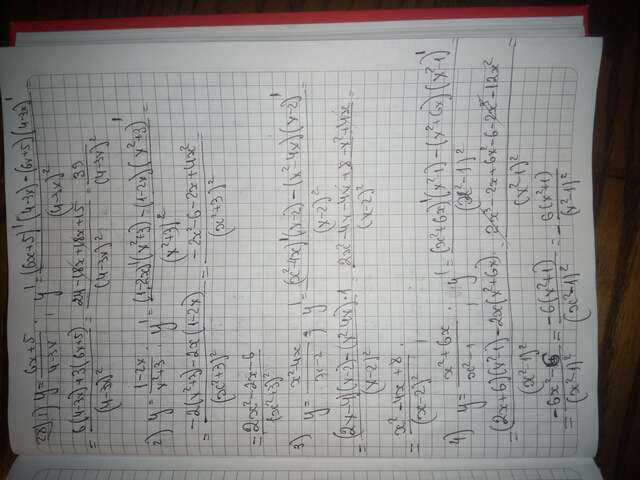 28) 1) y = (6x+5)/(4-3x) ; y' = ((6x+5)'(4-3x)-(6x+5)(4-3x)')/(4-3x)² =
= (6(4-3x)+3(6x+5))/(4-3x)² = (24-18x+18x+15)/(4-3x)² = 39/(4-3x)²
2) y = (1-2x)/(x²+3) ; y' = ((1-2x)'(x²+3)-(1-2x)(x²+3)')/(x²+3)² =
= (-2(x²+3)-2x(1-2x))/(x²+3)² = (-2x²-6-2x+4x²)/(x²+3)² =
= (2x²-2x-6)/(x²+3)²
3) y = (x²-4x)/(x-2) ; y' = ((x²-4x)'(x-2)-(x²-4x)(x-2)')/(x-2)² =
= ((2x-4)(x-2)-(x²-4x)·1)/(x-2)² = (2x²-4x-4x+8-x²+4x)/(x-2)² =
= (x²-4x+8)/(x-2)² .
4) y = (x²+6x)/(x²-1) ; y' = ((x²+6x)'(x²-1)-(x²+6x)(x²-1)')/(x²-1)² =
= ((2x+6)(x²-1)-2x(x²+6x))/(x²-1)² = (2x³-2x+6x²-6-2x³-12x²)/(x²-1)² =
= (-6x²-6)/(x²-1)² = (-6(x²+1))/(x²-1)² = - (6(x²+1))/(x²-1)²